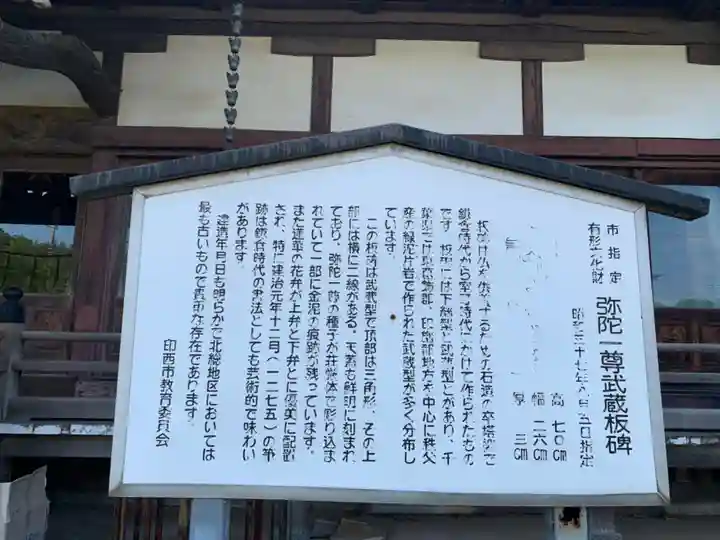 市指定
有形文化財
弥陀一尊武蔵板碑
昭和三十七年 月 五日指定
高 七〇cm
幅 二六cm
厚 三cm
板碑は仏を供養するための石造の卒塔婆で
鎌倉時代から室町時代にかけて作られたもの
です 板碑には下総型と武蔵型とがあり、千
葉県では東葛飾郡、印旛郡地方を中心に秩父
産の緑泥片岩で作られた武蔵型が多く分布し
ています。
この板碑は武蔵型で頂部は三角形、その上
部には横に二線がある。天蓋も鮮明に刻まれ
ており、弥陀一尊の種子が荘厳体で彫り込ま
れていて一部に金泥の痕跡が残っています。
また蓮華の花弁が上弁と下弁とに優美に配置
され、特に建治元年十二月（一二七五）の筆
跡は鎌倉時代の書法としても芸術的で味わい
があります。
造立年月日も明らかで北総地区においては
最も古いもので貴重な存在であります。
印西市教育委員会